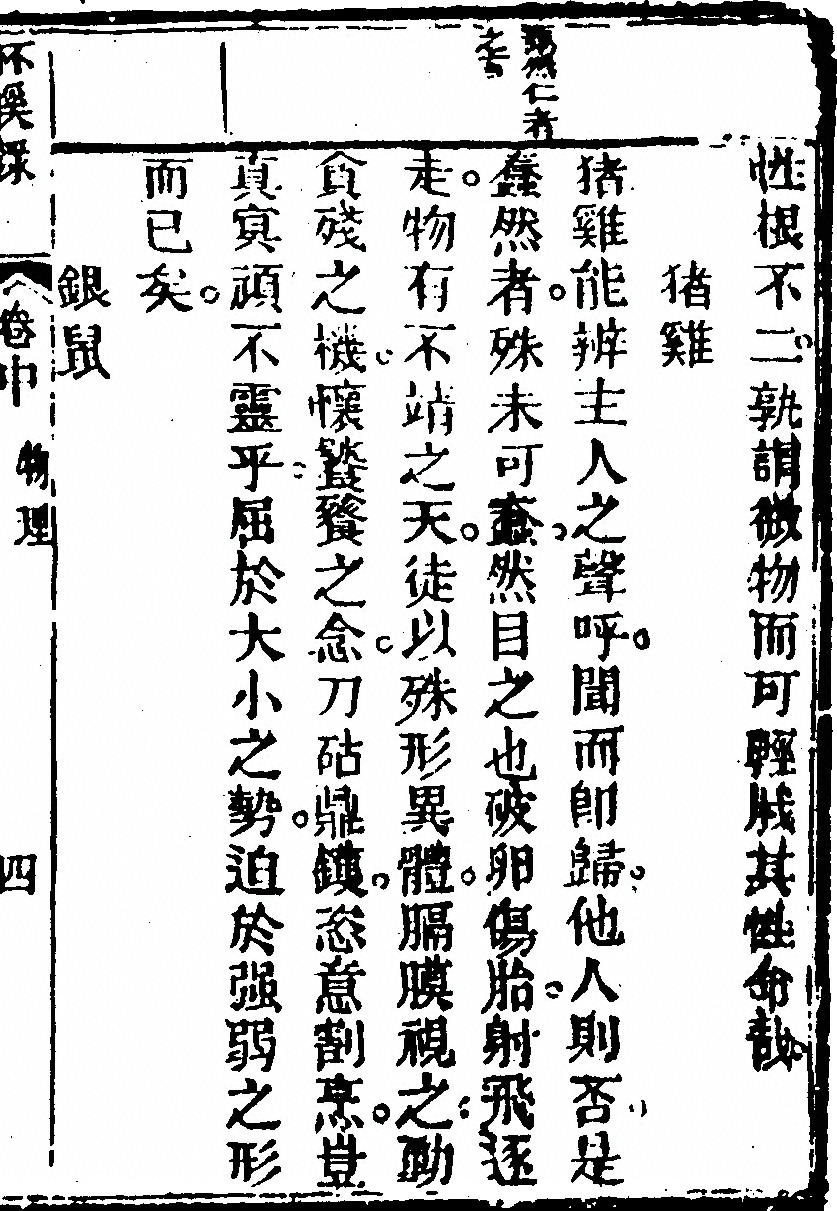 然仁者
之言
性根不二孰謂微物而可輕戕其性命哉
猪雞
猪雞能辨主人之聲呼聞而卽歸他人則否是
蠢然者殊未可蠢然目之也破卵傷胎射飛逐
走物有不靖之天徒以殊形異體膈膜視之動
貪殘之機懷饕餮之念刀砧鼎鑊恣意割烹豈
真冥頑不靈乎屈於大小之勢迫於强弱之形
而已矣
銀鼠
溪錄
卷中
物理
四